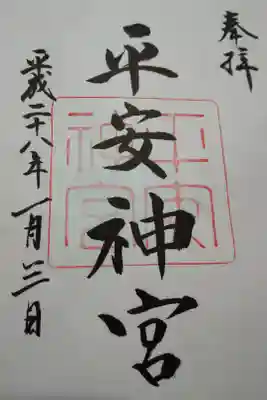 奉拝
平安神宮
平成二十八年一月三日